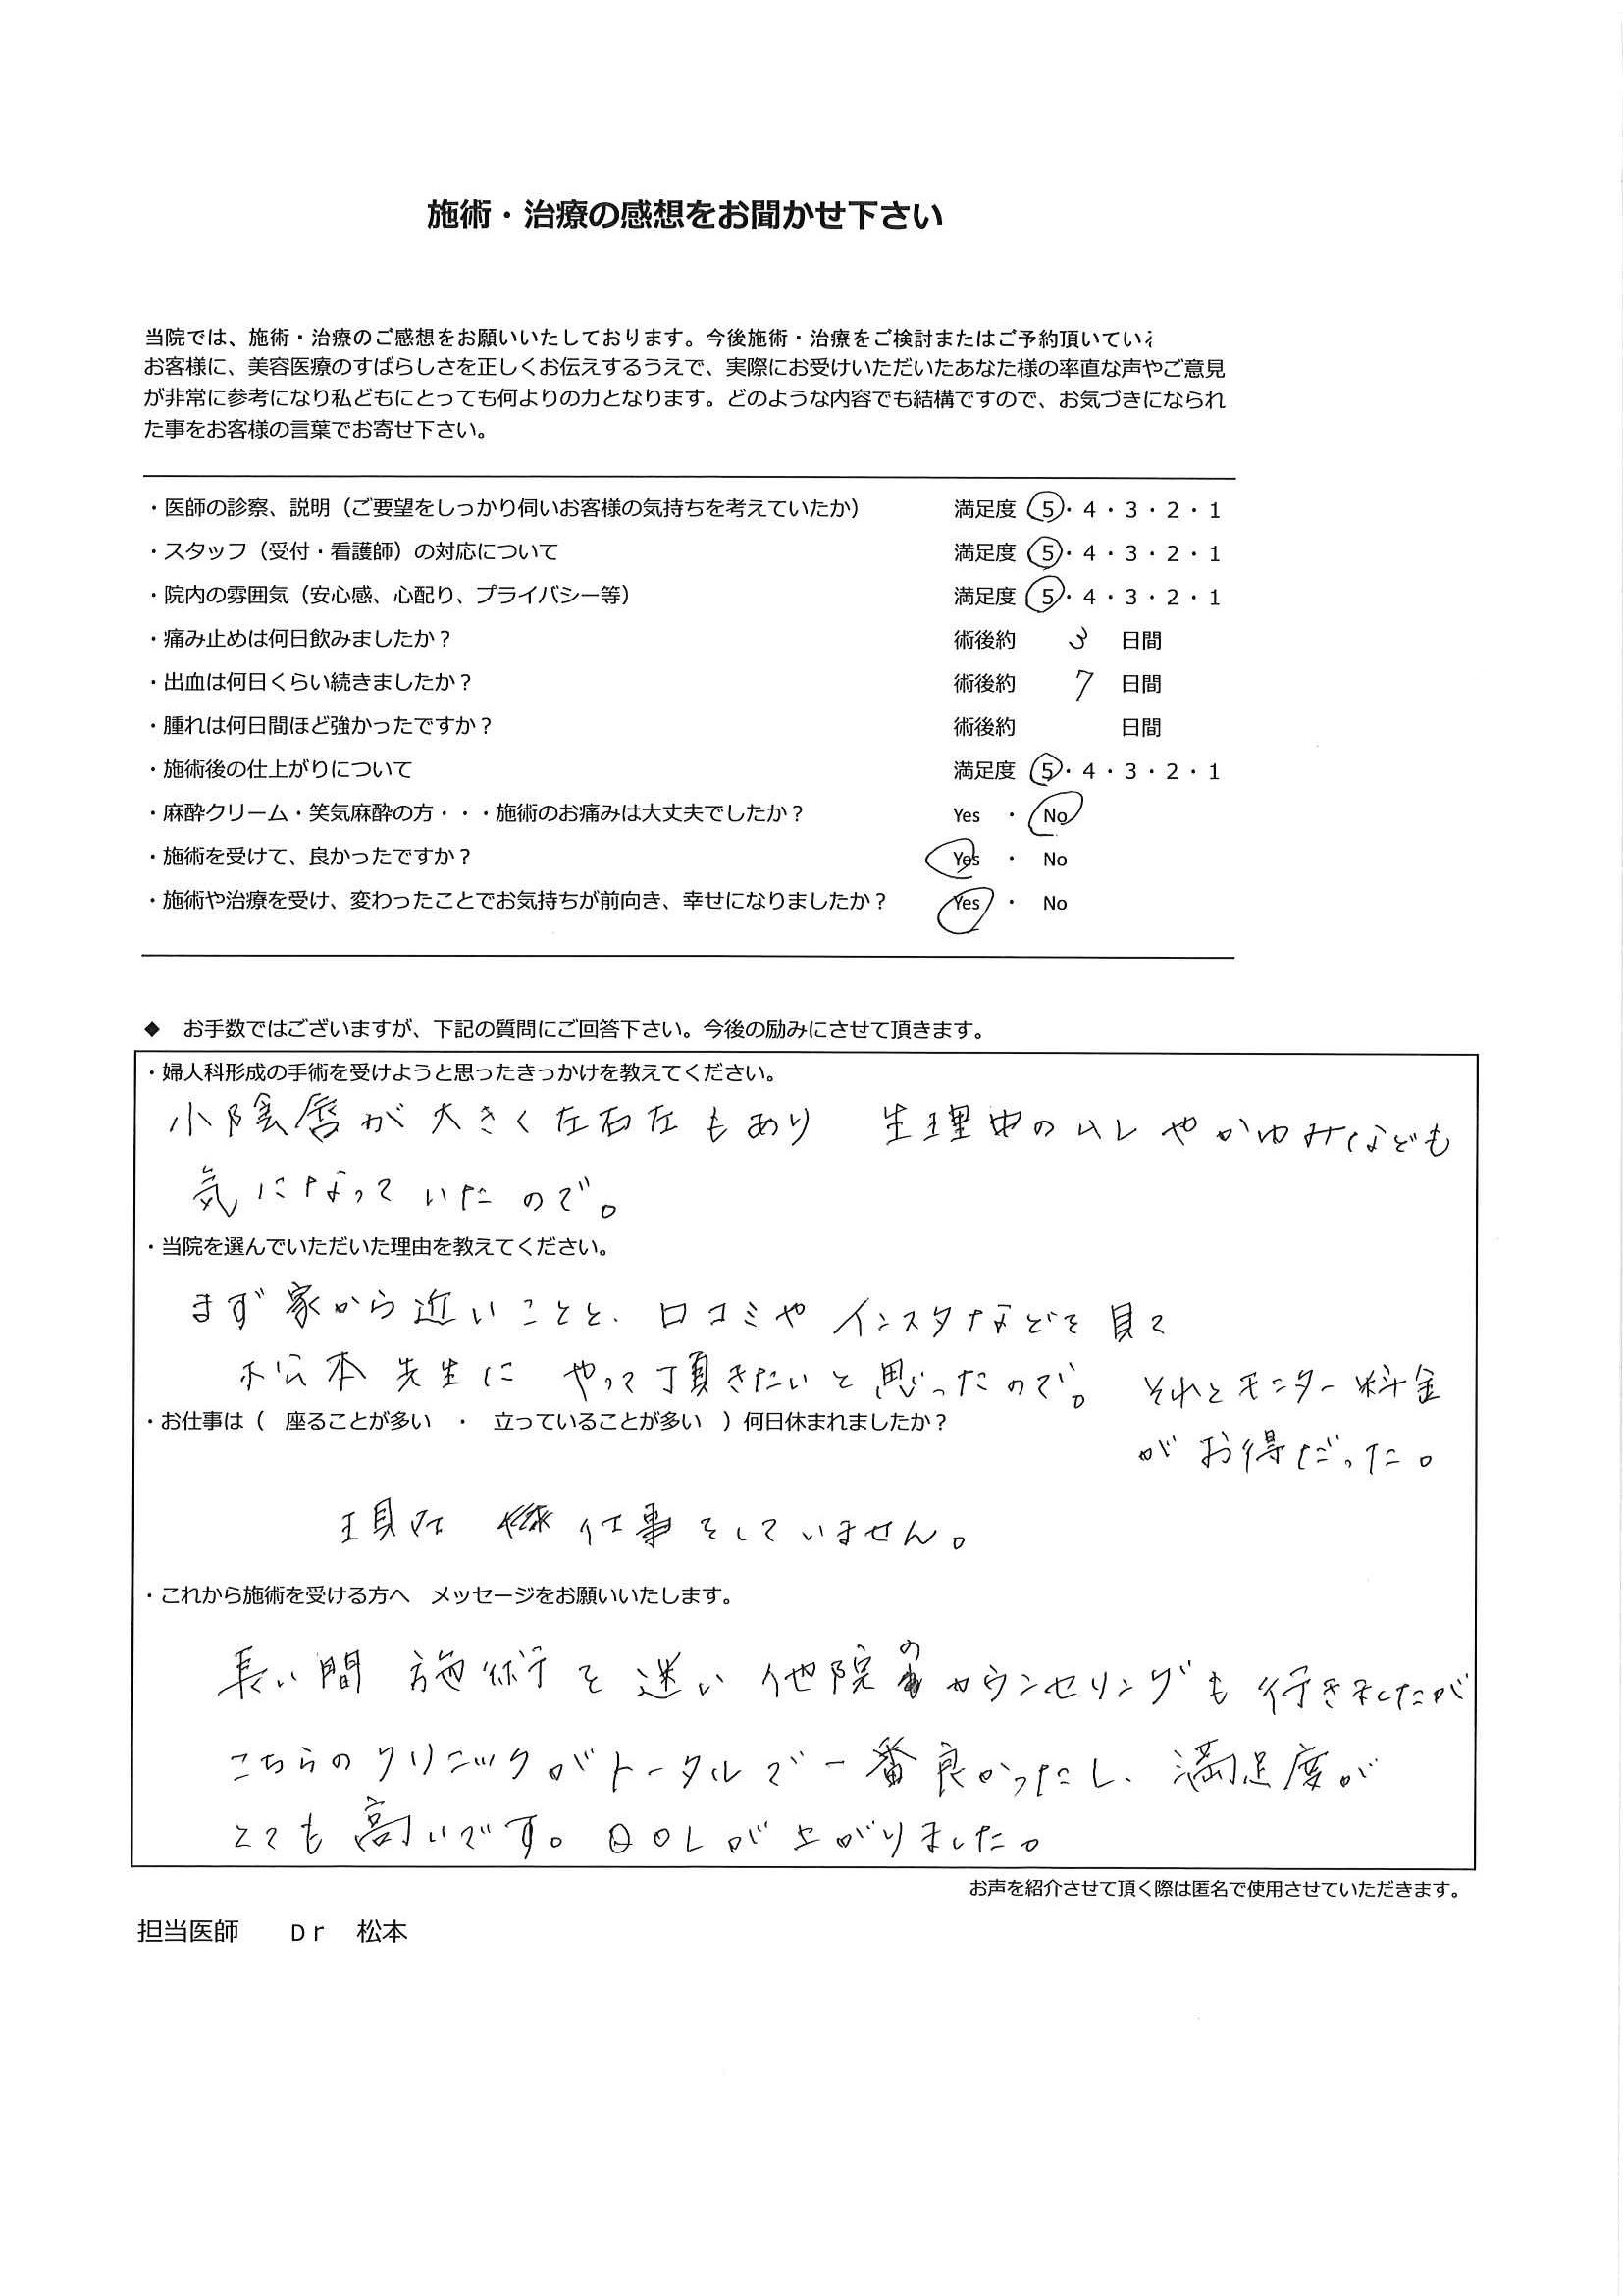 施術・治療の感想をお聞かせ下さい
当院では、施術・治療のご感想をお願いいたしております。今後施術・治療をご検討またはご予約頂いてい
お客様に、美容医療のすばらしさを正しくお伝えするうえで、実際にお受けいただいたあなた様の率直な声やご意見
が非常に参考になり私どもにとっても何よりの力となります。どのような内容でも結構ですので、お気づきになられ
た事をお客様の言葉でお寄せ下さい。
・医師の診察、説明（ご要望をしっかり伺いお客様の気持ちを考えていたか） 満足度 5・4・3・2・1
・スタッフ（受付・看護師）の対応について 満足度 5・4・3・2・1
・院内の雰囲気（安心感、心配り、プライバシー等） 満足度 5・4・3・2・1
・痛み止めは何日飲みましたか？ 術後約 3 日間
・出血は何日くらい続きましたか？ 術後約 7 日間
・腫れは何日間ほど強かったですか？ 術後約 日間
・施術後の仕上がりについて 満足度 5・4・3・2・1
・麻酔クリーム・笑気麻酔の方・・・施術のお痛みは大丈夫でしたか？ Yes ・ No
・施術を受けて、良かったですか？ Yes ・ No
・施術や治療を受け、変わったことでお気持ちが前向き、幸せになりましたか？ Yes ・ No
◆ お手数ではございますが、下記の質問にご回答下さい。今後の励みにさせて頂きます。
・婦人科形成の手術を受けようと思ったきっかけを教えてください。
小陰唇が大きく左右左もあり 生理中のムレやかゆみなども
気になっていたので。
・当院を選んでいただいた理由を教えてください。
まず家から近いことと、口コミやインスタなどを見て
松本先生にやって頂きたいと思ったので。 それとモニター料金
・お仕事は（ 座ることが多い ・ 立っていることが多い ）何日休まれましたか？
がお得だった。
現在 仕事をしていません。
・これから施術を受ける方へ メッセージをお願いいたします。
長い間 施術を迷い他院のカウンセリングも行きましたが
こちらのクリニックがトータルで一番良かったし、満足度が
とても高いです。QOLが上がりました。
お声を紹介させて頂く際は匿名で使用させていただきます。
担当医師 Dr 松本